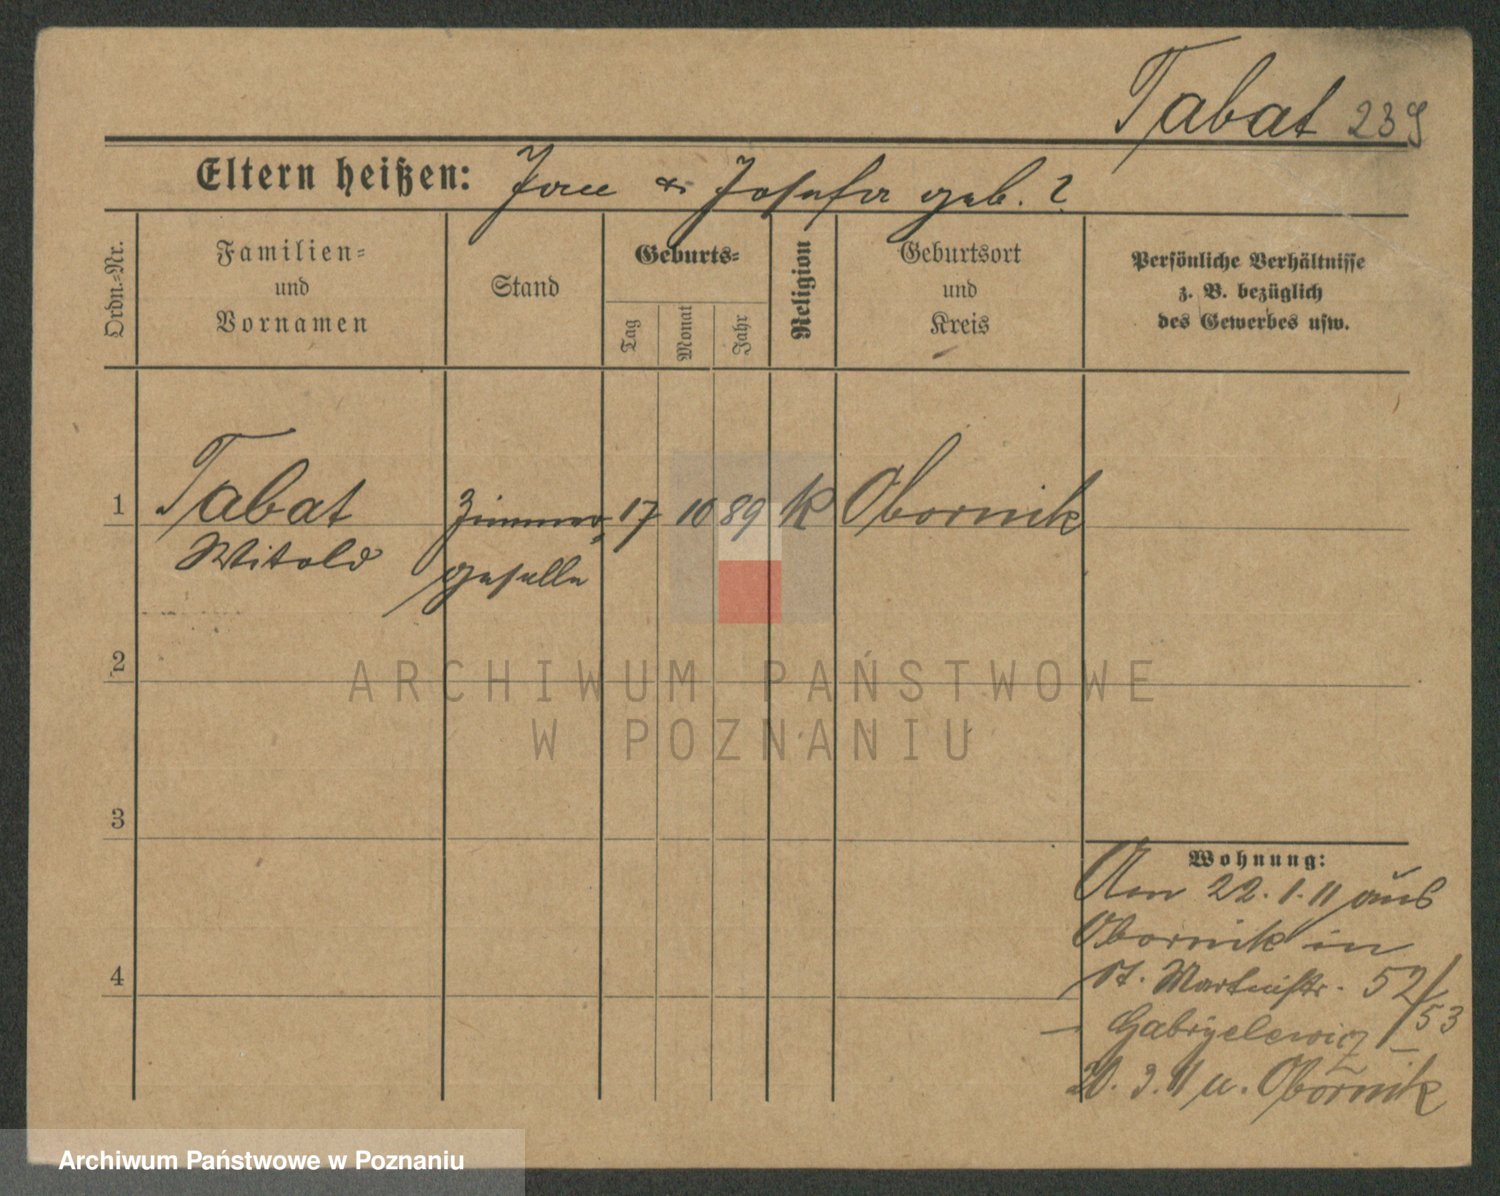 Tabat 239
Eltern heißen: Jan & Josefa geb. ?
Ordn.-Nr.
Familien-
und
Vornamen
Stand
Geburts-
Tag
Monat
Jahr
Religion
Geburtsort
und
Kreis
Persönliche Verhältnisse
z. B. bezüglich
des Gewerbes usw.
1 Tabat Zimmer- 17 10 89 K Obornik
Witold geselle
2
ARCHIWUM PAŃSTWOWE
W POZNANIU
3
Wohnung:
Am 22.1.11 aus
Obornik in
4 St. Martinstr. 52/53
Gabryelewicz
20.3.11 n. Obornik
Archiwum Państwowe w Poznaniu